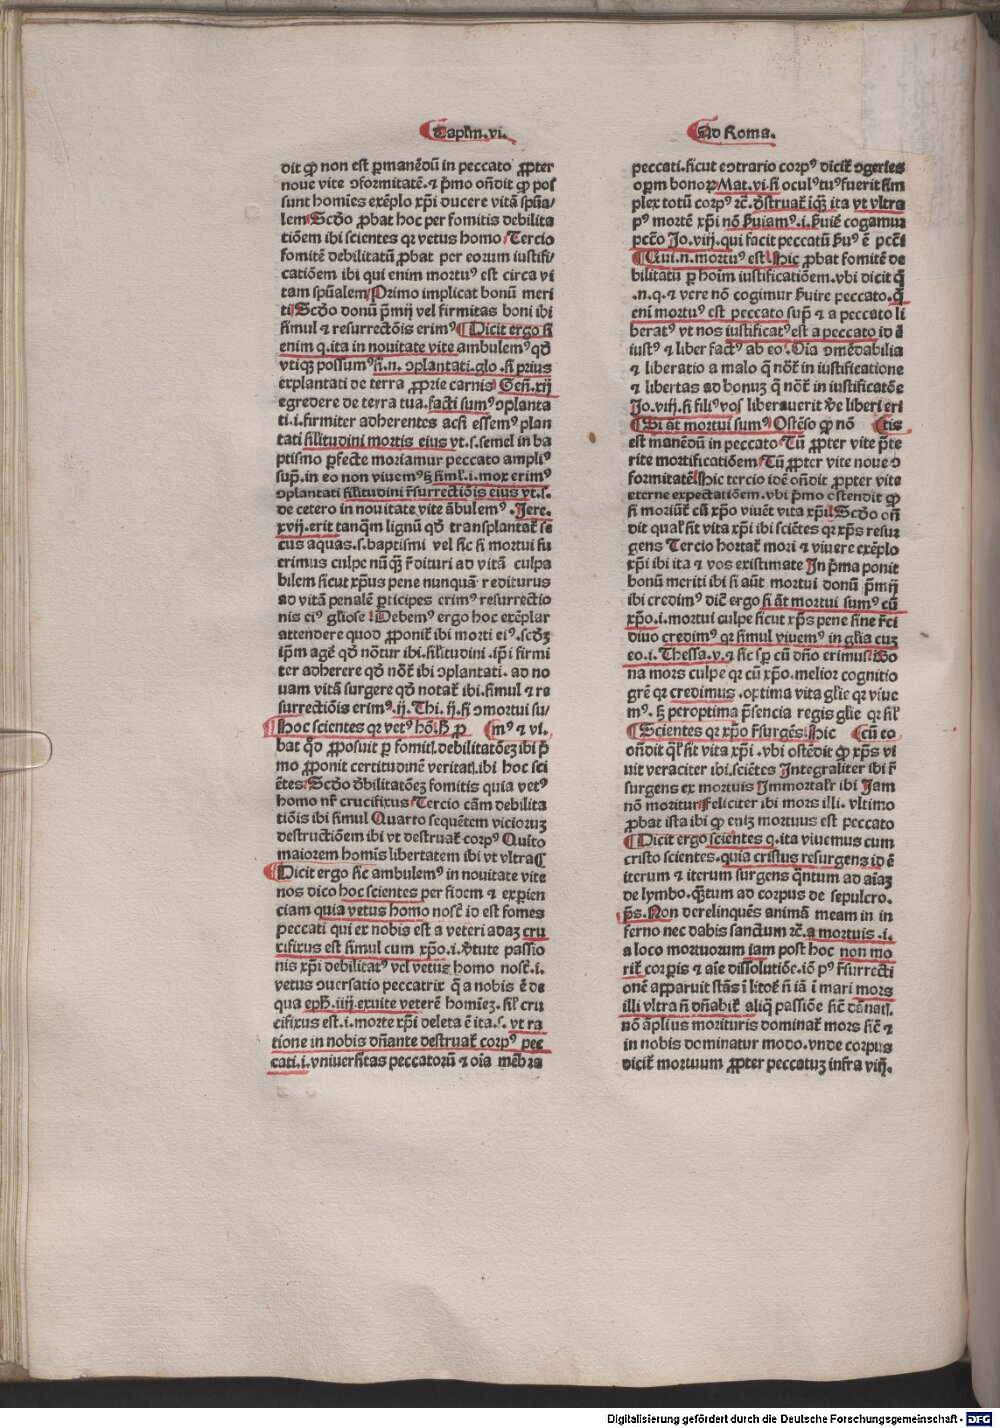 Capłm.vi.
Ad Roma.
dit ꝙ non est ꝑmanẽdũ in peccato ꝓpter
noue vite ɔformitatẽ.⁊ p̃mo oñdit ꝙ pos
sunt homies exẽplo xp̃i ducere vitã sp̃ua/
lem Scd̃o ꝓbat hoc per fomitis debilita
tiõem ibi scientes qꝛ vetus homo Tercio
fomitẽ debilitatũ ꝓbat per eorum iustifi/
catiõem ibi qui enim mortuꝰ est circa vi
tam sp̃ualem Primo implicat bonũ meri
ti Scd̃o donũ p̃mij vel firmitas boni ibi
simul ⁊ resurrectõis erimꝰ Dicit ergo si
enim q.ita in nouitate vite ambulemꝰ qd̃
vtiqꝫ possumꝰ si.n.ɔplantati.glo.si prius
explantati de terra ꝓprie carnis Geñ.xij
egredere de terra tua.facti sumꝰ ɔplanta
ti.i.firmiter adherentes acsi essemꝰ plan
tati silitudini mortis eius vt.s.semel in ba
ptismo ꝑfecte moriamur peccato ampliꝰ
sup̃.in eo non viuemꝰ ꝫ simł.i.mox erimꝰ
ɔplantati silitudini r̃surrectiõis eius vt.s.
de cetero in nouitate vite ãbulemꝰ.Jere.
xvij.erit tanq̃m lignũ qd̃ transplantat̃ se
cus aquas.s.baptismi vel sic si mortui fu
erimus culpe nũqꝫ r̃dituri ad vitã culpa
bilem sicut xp̃us pene nunquã rediturus
ad vitã penalẽ ꝑticipes erimꝰ resurrectio
nis eiꝰ gliose Debemꝰ ergo hoc exẽplar
attendere quod ꝓponit̃ ibi morti eiꝰ.scd̃ꝫ
ip̃m agẽ qd̃ nõtur ibi.silitudini.ip̃i firmi
ter adherere qd̃ nõt̃ ibi ɔplantati.ad no
uam vitã surgere qd̃ notat̃ ibi.simul ⁊ re
surrectiõis erimꝰ.ij.Thi.ij.si ɔmortui su/
Hoc scientes qꝛ vetꝰ hõ. mꝰ ⁊ vi.
bat qd̃ ꝓposuit ꝑ fomiti.debilitatõeꝫ ibi p̃
mo ꝓponit certitudinẽ veritati.ibi hoc sci
ẽtes Scd̃o d̃bilitatõeꝫ fomitis quia vetꝰ
homo nr̃ crucifixus Tercio cãm debilita
tiõis ibi simul Quarto sequẽtem vicioruꝫ
destructiõem ibi vt destruat̃ corpꝰ Quĩto
maiorem homĩs libertatem ibi vt vltra
Dicit ergo sic ambulemꝰ in nouitate vite
nos dico hoc scientes per fidem ⁊ expien
ciam quia vetus homo nost̃ id est fomes
peccati qui ex nobis est a veteri adaꝫ cru
cifixus est simul cum xp̃o.i.v̾tute passio
nis xp̃i debilitatꝰ vel vetus homo nost̃.i.
vetus ɔuersatio peccatrix q̃ a nobis ẽ de
qua eph̃.iiij.exuite veterẽ homĩeꝫ.sił cru
cifixus est.i.morte xp̃i deleta ẽ ita.s.vt ra
tione in nobis dñante destruat̃ corpꝰ pec
cati.i.vniuersitas peccatorũ ⁊ oĩa mẽbra
peccati.sicut eɔtrario corpꝰ dicit̃ ɔgeries
opm̃ bonoꝝ Mat.vi.si oculꝰ tuꝰ fuerit sim
plex totũ corpꝰ ⁊c̃.d̃struat̃ iqꝫ ita vt vltra
pꝰ mortẽ xp̃i nõ s̃uiamꝰ.i.s̃uiẽ cogamur
pctõ Jo.viij.qui facit peccatũ s̃uꝰ ẽ pcti
Qui.n.mortuꝰ est Hic ꝓbat fomitẽ de
bilitatũ ꝑ hoĩm iustificatiõem.vbi dicit q̃
.n.q.⁊ vere nõ cogimur s̃uire peccato.q̃
eni mortuꝰ est peccato sup̃ ⁊ a peccato li
beratꝰ vt nos iustificatꝰ est a peccato id ẽ
iustꝰ ⁊ liber factꝰ ab eo.Oĩa ɔmẽdabilia
⁊ liberatio a malo q̃ nõt̃ in iustificatione
⁊ libertas ad bonuꝫ q̃ nõt̃ in iustificatõe
Jo.viij.si filiꝰ vos liberauerit v̾e liberi eri
Si ãt mortui sumꝰ Ostẽso ꝙ nõ tis
est manẽdũ in peccato Tũ ꝓpter vite p̃te
rite mortificatiõem Tũ ꝓpter vite noue ɔ
formitatẽ Hic tercio idẽ oñdit ꝓpter vite
eterne expectatiõem.vbi p̃mo ostendit ꝙ
si moriũt̃ cũ xp̃o viuẽt vita xp̃i Scd̃o oñ
dit qual̃ sit vita xp̃i ibi sciẽtes qꝛ xp̃s resur
gens Tercio hortat̃ mori ⁊ viuere exẽplo
xp̃i ibi ita ⁊ vos existimate In p̃ma ponit
bonũ meriti ibi si aũt mortui donũ p̃mij
ibi credimꝰ dic̃ ergo si ãt mortui sumꝰ cũ
xp̃o.i.mortui culpe sicut xp̃s pene sine r̃ci
diuo credimꝰ qꝛ simul viuemꝰ in glia cuꝫ
eo.i.Thessa.v.⁊ sic sp̃ cũ dño erimus Bo
na mors culpe qꝛ cũ xp̃o.melior cognitio
grẽ qꝛ credimus.optima vita glie qꝛ viue
mꝰ.ꝫ peroptima p̃sencia regis glie qꝛ sił
Scientes qꝛ xp̃o r̃surgẽs Hic cũ eo
oñdit q̃l̃ sit vita xp̃i.vbi ostẽdit ꝙ xp̃s vi
uit veraciter ibi.sciẽtes Integraliter ibi r̃
surgens ex mortuis Immortalr̃ ibi Jam
nõ moritur Feliciter ibi mors illi.vltimo
ꝓbat ista ibi ꝙ eniꝫ mortuus est peccato
Dicit ergo scientes q.ita viuemus cum
cristo scientes.quia cristus resurgens id ẽ
iterum ⁊ iterum surgens q̃ntum ad aĩaꝫ
de lymbo.q̃tum ad corpus de sepulcro.
p̃s.Non derelinquẽs animã meam in in
ferno nec dabis sanctum ⁊c̃.a mortuis.i.
a loco mortuorum iam post hoc non mo
rit̃ corpĩs ⁊ aĩe dissolutiõe.iõ pꝰ r̃surrecti
onẽ apparuit stãs ĩ litoẽ ñ iã ĩ mari mors
illi vltra ñ dñabit̃ aliq̃ passiõe sic̃ dãnati.
nõ ãplius morituris dominat̃ mors sic̃ ⁊
in nobis dominatur modo.vnde corpus
dicit̃ mortuum ꝓpter peccatuꝫ infra viij.
Digitalisierung gefördert durch die Deutsche Forschungsgemeinschaft - DFG